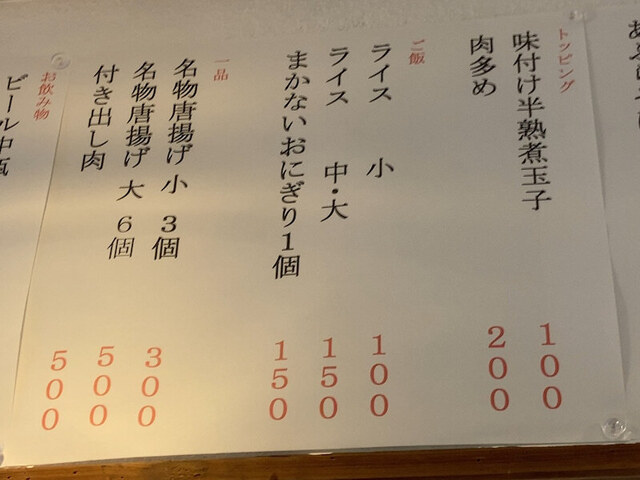 トッピング
味付け半熟煮玉子 100
肉多め 200
ご飯
ライス 小 100
ライス 中・大 150
まかないおにぎり1個 150
一品
名物唐揚げ 小 3個 300
名物唐揚げ 大 6個 500
付き出し肉 500
お飲み物